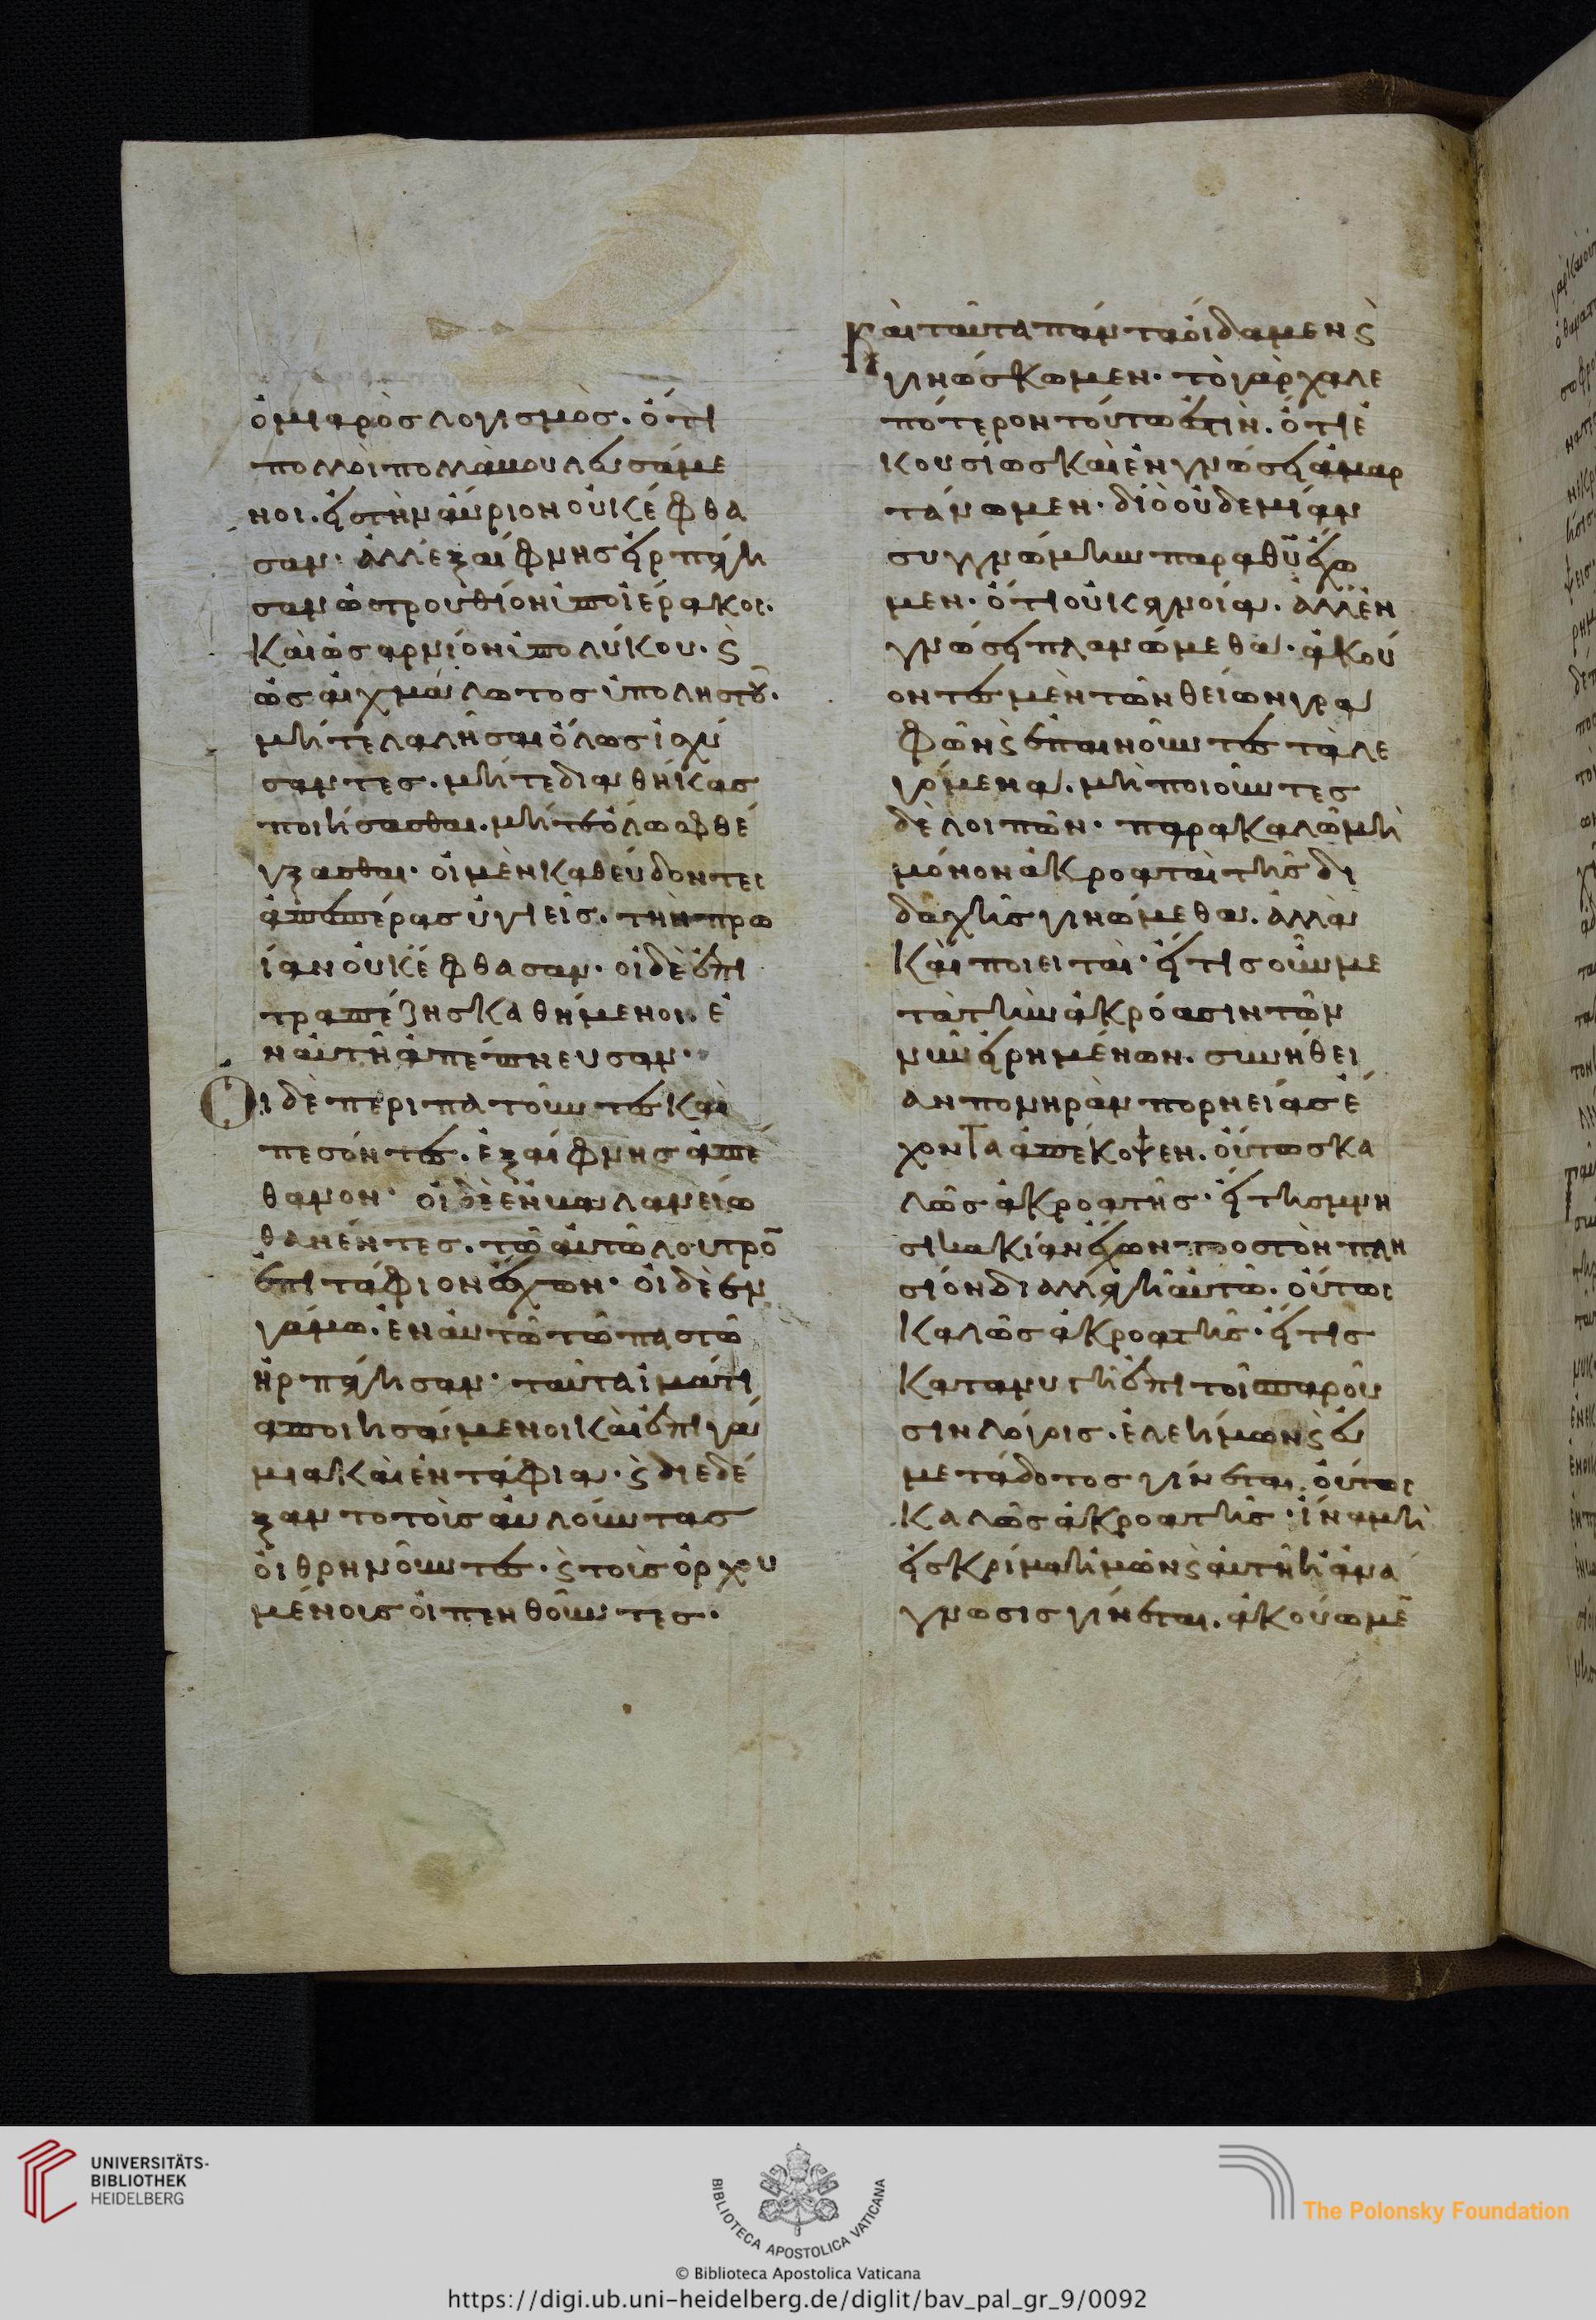 ὁ μιαρὸς λογισμὸς. ὅτι
πολλοὶ πολλὰ βουλευσάμε
νοι. εἰς τὴν αὔριον οὐκ ἔφθα
σαν· ἀλλ' ἐξαίφνης εἱρπάγη
σαν ὡς στρουθίον ὑπὸ ἱέρακος.
Καὶ ὡς ἀρνίον ὑπὸ λύκου. ϛ
ὡς αἰχμάλωτος ὑπὸ ληστοῦ.
μήτε λαλῆσαι ὅλως ἰσχύ
σαντες. μήτε διαθήκας
ποιήσασθαι. μήτε ὅλως φθέ
γξασθαι· οἱ μὲν καθεύδοντες
ἀπὸ ἑσπέρας ὑγιεῖς. τὴν πρω
ίαν οὐκ ἔφθασαν· οἱ δὲ ἐπὶ
τραπέζης καθήμενοι. ἐ
ν αὐτῇ ἀπέπνευσαν·
Οἱ δὲ περιπατοῦντες καὶ
πεσόντες. ἐξαίφνης ἀπέ
θανον· οἱ δὲ ἐν βαλανείω
θανέντες. τῶ αὐτῶ λουτρὸ
ἐπιτάφιον ἔχων· οἱ δὲ ἐν
γάμω. ἐν αὐτῶ τῶ παστῶ
ἡρπάγησαν· ταὐτὰ ἱμάτι
α ποιησάμενοι καὶ ἐπιγά
μια καὶ ἐντάφια. ϛ διεδέ
ξαντο τοῖς αὐλοῦντας
οἱ θρηνοῦντες. ϛ τοῖς ὀρχου
μένοις οἱ πενθοῦντες.
Καὶ ταῦτα πάντα οἴδαμεν ϛ
γινώσκωμεν. τὸ γὰρ χαλε
πότερον τοῦτω ἐστὶν. ὅτι ἑ
κουσίως καὶ ἐν γνώσει ἁμαρ
τάνωμεν. διὸ οὐδεμίαν
συγγνώμην παρὰ θῦ ἔχω
μεν. ὅτι οὐκ ἀγνοία. ἀλλ' ἐν
γνώσει πλανώμεθα. ἀκού
οντες μὲν τῶν θείων γρα
φῶν ϛ ἐπαινοῦντες τὰ λε
γόμενα. μὴ ποιοῦντες
δὲ λοιπῶν. παρακαλῶ μὴ
μόνον ἀκροαταὶ τῆς δι
δαχῆς γινώμεθα. ἀλλὰ
Καὶ ποιειταὶ· εἴ τις οὖν με
τὰ τὴν ἀκρόασιν τῶν
νῦν εἰρημένων. συνήθει
αν πονηρὰν πορνείας ἔ
χοντα ἀπέκοψεν. οὗτος κα
λῶς ἀκροατὴς· εἴ τις μνη
σικακίαν ἔχων προς τὸν πλη
σίον διαλλαγῆ αὐτῶ. οὗτος
Καλῶς ἀκροατὴς· εἴ τις
Κατανυγῆ ἐπὶ τοῖ παροῦ
σιν λόγοις. ἐλεήμων ϛ εὐ
μετάδοτος γίνεται. οὗτος
Καλῶς ἀκροατὴς· ἵνα μὴ
εἰς κρίμα ἡμῶν ϛ αὐτὴ ἡ ἀνά
γνωσις γίνεται. ἀκούωμε
UNIVERSITÄTS-
BIBLIOTHEK
HEIDELBERG
BIBLIOTECA APOSTOLICA VATICANA
The Polonsky Foundation
© Biblioteca Apostolica Vaticana
https://digi.ub.uni-heidelberg.de/diglit/bav_pal_gr_9/0092